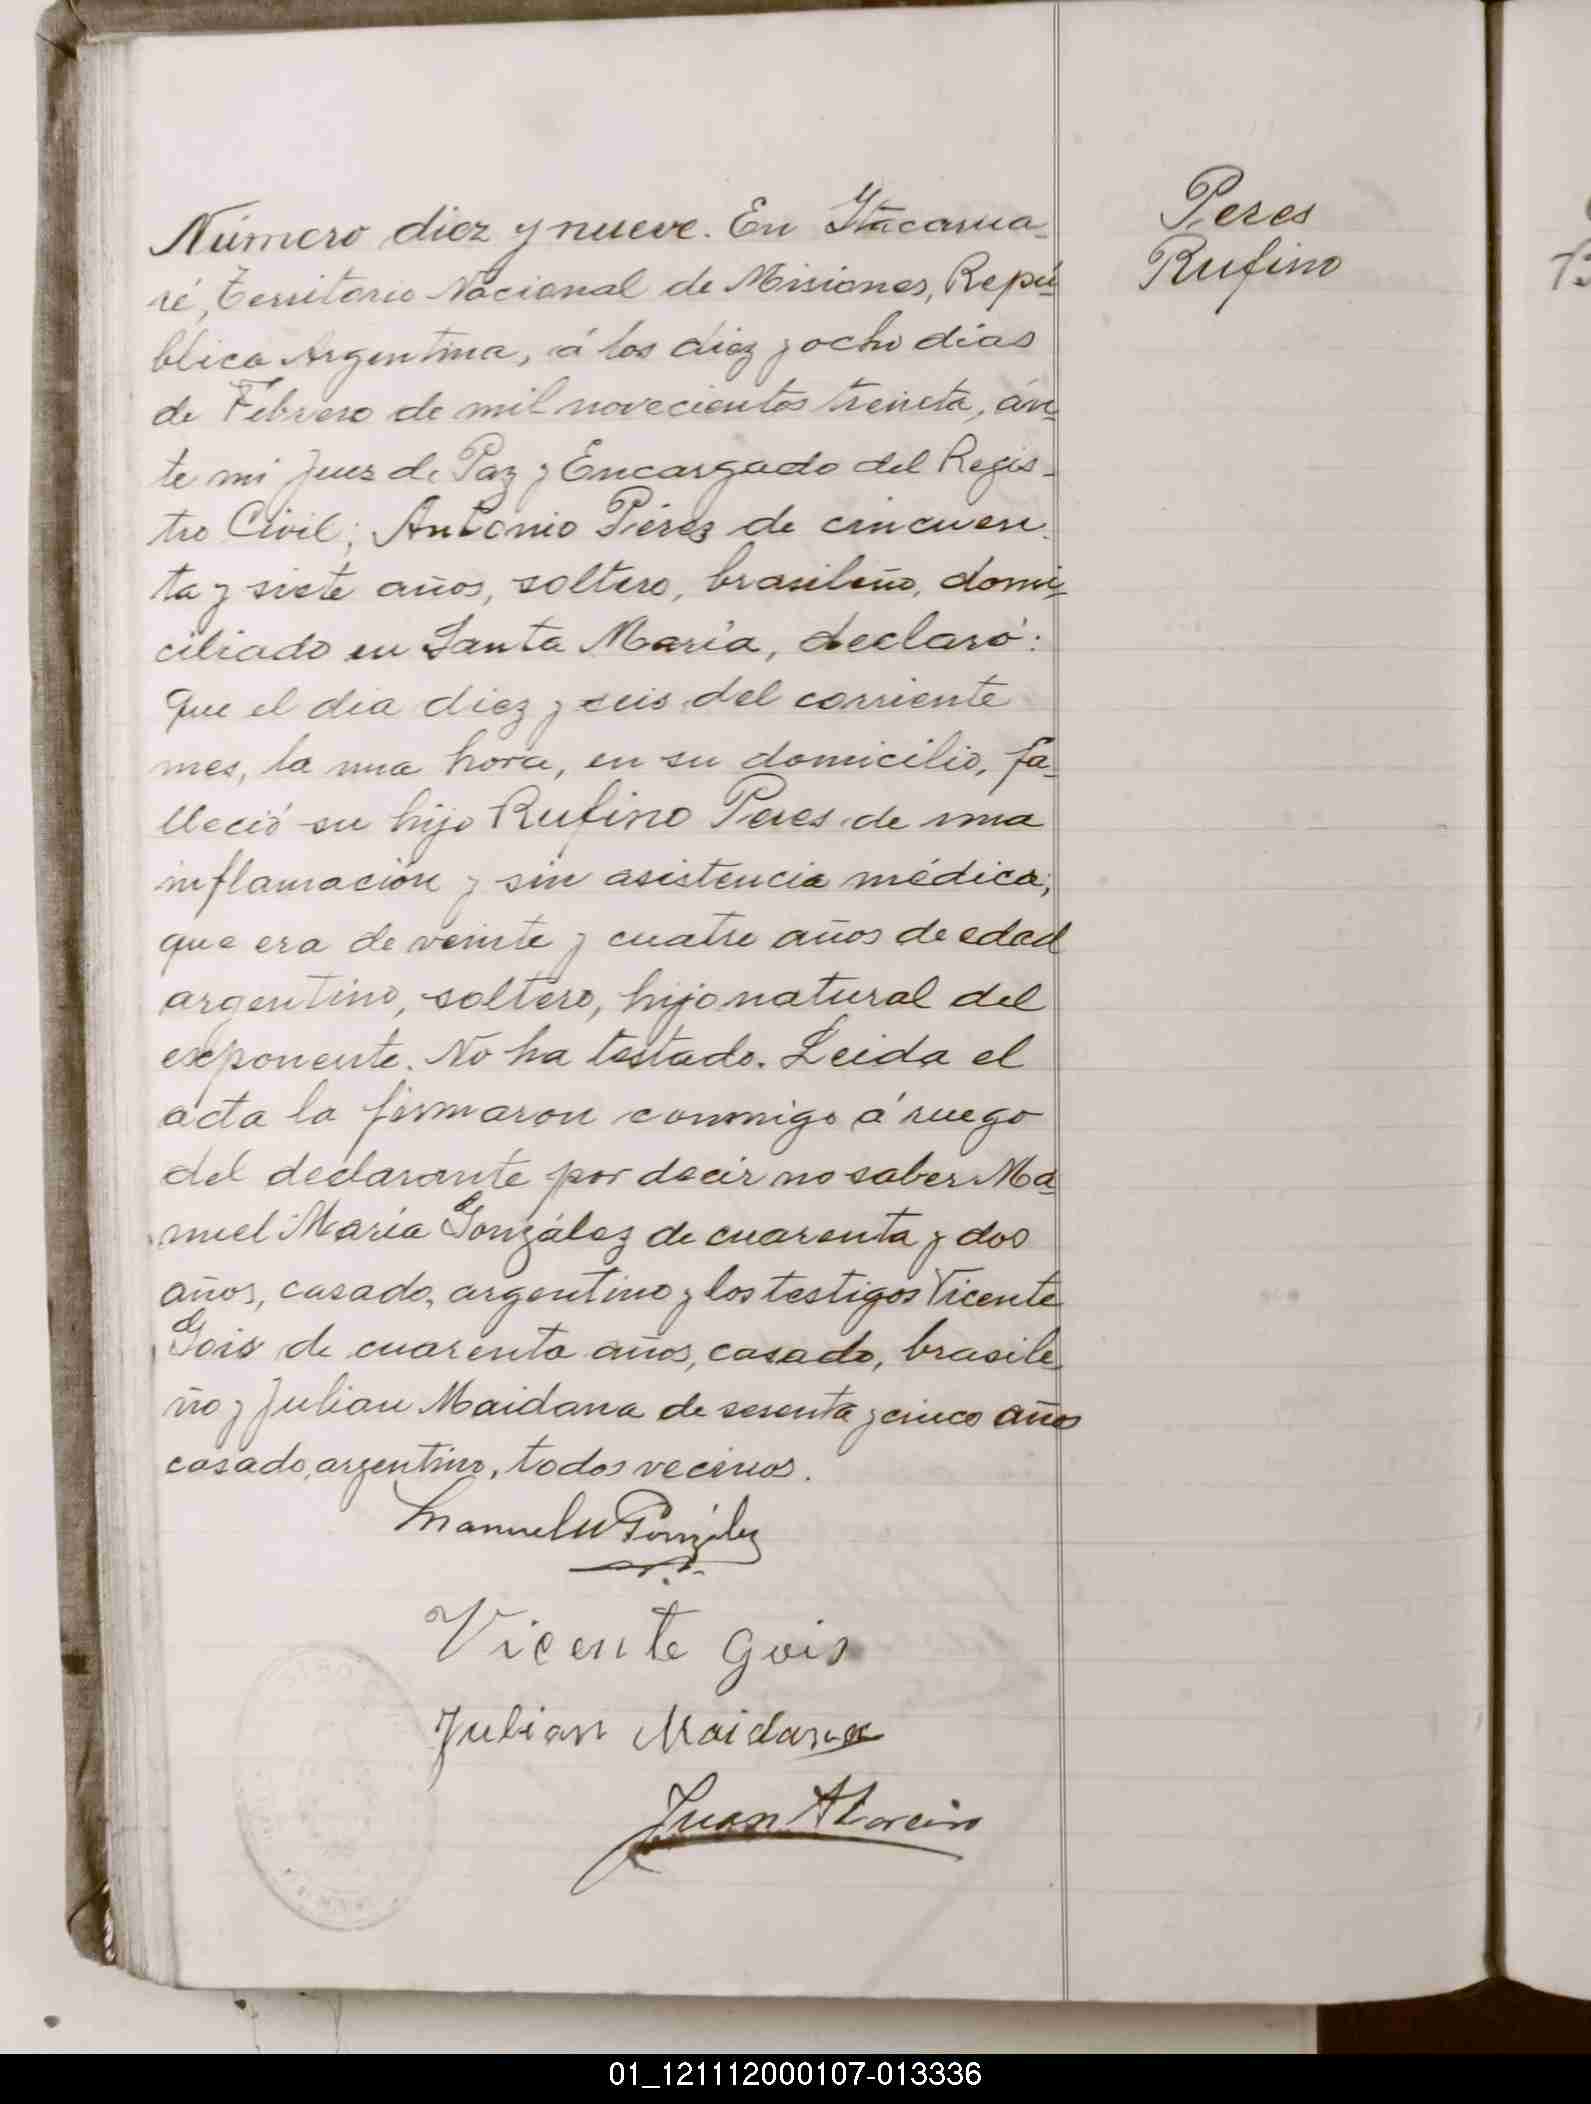 Peres
Rufino
Número diez y nueve. En Itacarua-
ré, Territorio Nacional de Misiones, Repú-
blica Argentina, á los diez y ocho dias
de Febrero de mil novecientos treinta, án-
te mi Juez de Paz y Encargado del Regis-
tro Civil; Antonio Pérez de cincuen-
ta y siete años, soltero, brasileño, domi-
ciliado en Santa María, declaró:
Que el dia diez y seis del corriente
mes, la una hora, en su domicilio, fa-
lleció su hijo Rufino Peres de una
inflamación y sin asistencia médica;
que era de veinte y cuatro años de edad
argentino, soltero, hijo natural del
exponente. No ha testado. Leida el
acta la firmaron conmigo á ruego
del declarante por decir no saber Ma-
nuel María González de cuarenta y dos
años, casado, argentino y los testigos Vicente
Gois de cuarenta años, casado, brasile-
ño y Julian Maidana de sesenta y cinco años
casado, argentino, todos vecinos.
Manuel M González
Vicente Gois
Julian Maidana
Juan
01_121112000107-013336